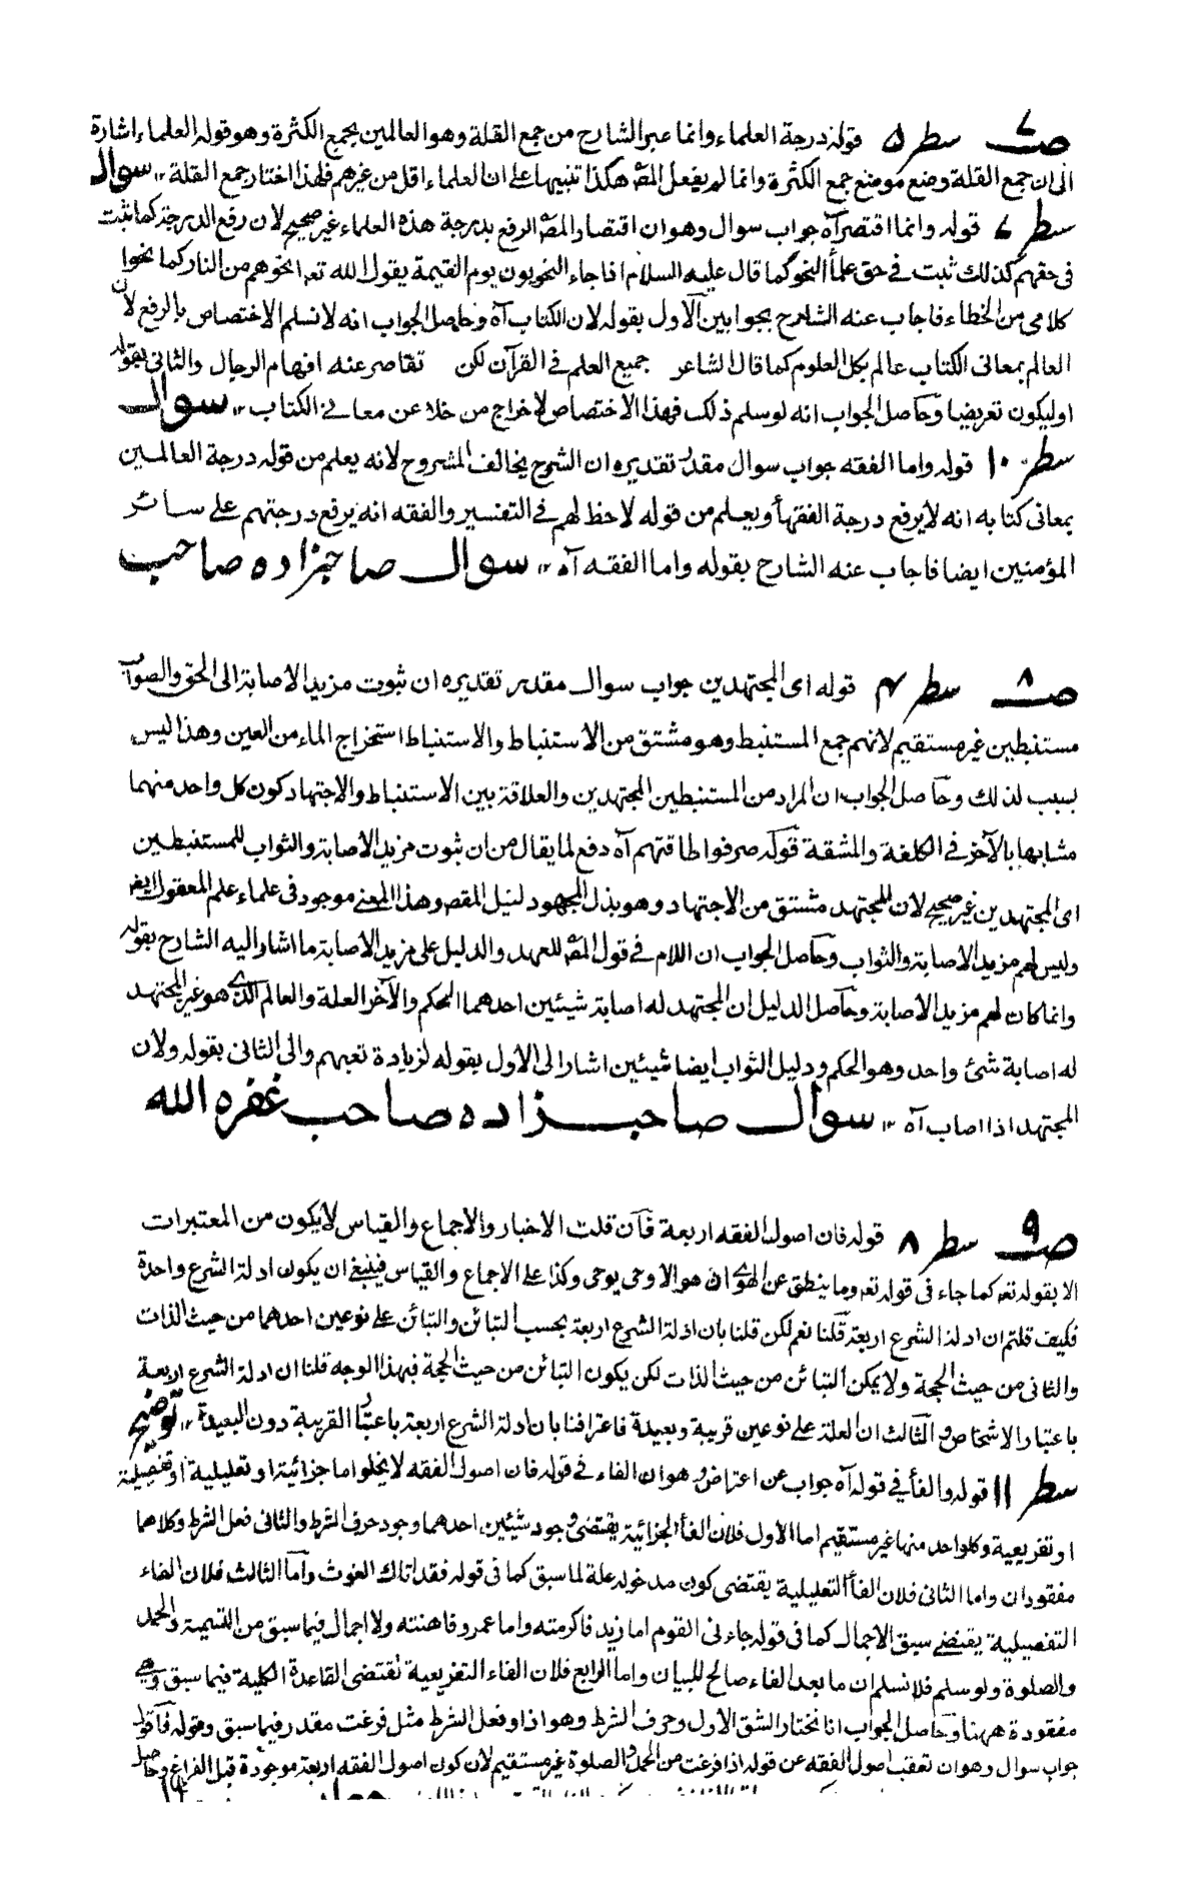 صـ ٧ سطر ٥ قوله درجة العلماء وانما عبر الشارح من جمع القلة وهو العالمين بجمع الكثرة وهو قوله العلماء اشارة
الى ان جمع القلة وضع موضع جمع الكثرة وانما لم يفعل المصـ هكذا تنبيها على ان العلماء اقل من غيرهم فلهذا اختار جمع القلة ١٢ سوال
سطر ٧ قوله وانما اقتصر آه جواب سوال وهو ان اقتصار المصـ الرفع بدرجة هذه العلماء غير صحيح لان رفع الدرجة كما ثبت
فى حقهم كذلك ثبت فى حق علمأ النحو كما قال عليه السلام اذا جاء النحويون يوم القيمة يقول الله تعـ انحوهم من النار كما نحوا
كلامى من الخطاء فاجاب عنه الشارح بجوابين الآول بقوله لان الكتاب آه وحاصل الجواب انه لا نسلم الاختصاص بالرفع لان
العالم بمعانى الكتاب عالم بكل العلوم كما قال الشاعر جميع العلم فى القرآن لكن تقاصر عنه افهام الرجال والثانى بقوله
او ليكون تعريضا وحاصل الجواب انه لو سلم ذلك فهذا الاختصاص لاخراج من خلا عن معانى الكتاب ١٢ سوال
سطر ١٠ قوله واما الفقه جواب سوال مقدر تقديره ان الشرح يخالف المشروح لانه يعلم من قوله درجة العالمين
بمعانى كتابه انه لا يرفع درجة الفقهأ ويعلم من قوله لاحظ لهم فى التفسير والفقه انه يرفع درجتهم على سائر
المؤمنين ايضا فاجاب عنه الشارح بقوله واما الفقه آه ١٢ سوال صاحبزاده صاحب
صـ ٨ سطر ٤ قوله اى المجتهدين جواب سوال مقدر تقديره ان ثبوت مزيد الاصابة الى الحق والصواب
مستنبطين غير مستقيم لانهم جمع المستنبط وهو مشتق من الاستنباط والاستنباط استخراج الماء من العين وهذا ليس
بسبب لذلك وحاصل الجواب ان المراد من المستنبطين المجتهدين والعلاقة بين الاستنباط والاجتهاد كون كل واحد منهما
مشابها بالآخر فى الكلفة والمشقة قوله صرفوا طاقتهم آه دفع لما يقال من ان ثبوت مزيد الاصابة والثواب للمستنبطين
اى المجتهدين غير صحيح لان المجتهد مشتق من الاجتهاد وهو بذل المجهود لنيل المقصـ وهذا المعنى موجود فى علماء علم المعقول ايضـ
وليس لهم مزيد الاصابة والثواب وحاصل الجواب ان اللام فى قول المصـ للعهد والدليل على مزيد الاصابة ما اشار اليه الشارح بقوله
وانما كان لهم مزيد الاصابة وحاصل الدليل ان المجتهد له اصابة شيئين احدهما الحكم والآخر العلة والعالم الذى هو غير المجتهد
له اصابة شئ واحد وهو الحكم ودليل الثواب ايضا شيئين اشار الى الاول بقوله لزيادة تعبهم والى الثانى بقوله ولان
المجتهد اذا اصاب آه ١٢ سوال صاحبزاده صاحب غفره الله
صـ ٩ سطر ٨ قوله فان اصول الفقه اربعة فآن قلت الاخبار والاجماع والقياس لا يكون من المعتبرات
الا بقوله تعـ كما جاء فى قوله تعـ وما ينطق عن الهوى ان هو الا وحى يوحى وكذا على الاجماع والقياس فينبغى ان يكون ادلة الشرع واحدة
فكيف قلتم ان ادلة الشرع اربعة قلنا نعم لكن قلنا بان ادلة الشرع اربعة بحسب التبائن والتبائن على نوعين احدهما من حيث الذات
والثانى من حيث الحجة ولا يمكن التبائن من حيث الذات لكن يكون التبائن من حيث الحجة فبهذا الوجه قلنا ان ادلة الشرع اربعة
باعتبار الاشخاص والثالث ان العلة على نوعين قريبة وبعيدة فاعترافنا بان ادلة الشرع اربعة باعتبار القريبة دون البعيدة ١٢ توضيح
سطر ١١ قوله والفأ فى قوله آه جواب عن اعتراض وهو ان الفاء فى قوله فان اصول الفقه لا يخلو اما جزائية او تعليلية او تفصيلية
او تفريعية وكلواحد منها غير مستقيم اما الأول فلان الفأ الجزائية يقتضى وجود شيئين احدهما وجود حرف الشرط والثانى فعل الشرط وكلاهما
مفقودان واما الثانى فلان الفأ التعليلية يقتضى كون مدخوله علة لما سبق كما فى قوله فقد اتاك الغوث وآما الثالث فلان الفاء
التفصيلية يقتضى سبق الاجمال كما فى قوله جاءنى القوم اما زيد فاكرمته واما عمرو فاهنته ولا اجمال فيما سبق من التسمية والحمد
والصلوة ولو سلم فلا نسلم ان ما بعد الفاء صالح للبيان واما الرابع فلان الفاء التفريعية تقتضى القاعدة الكلية فيما سبق وهى
مفقودة ههنا وحاصل الجواب انا نختار الشق الاول وحرف الشرط وهو اذا وفعل الشرط مثل فرغت مقدر فيما سبق وقوله فآقول
جواب سوال وهو ان تعقب اصول الفقه عن قوله اذا فرغت من الحمد والصلوة غير مستقيم لان كون اصول الفقه اربعة موجودة قبل الفراغ وحاصل